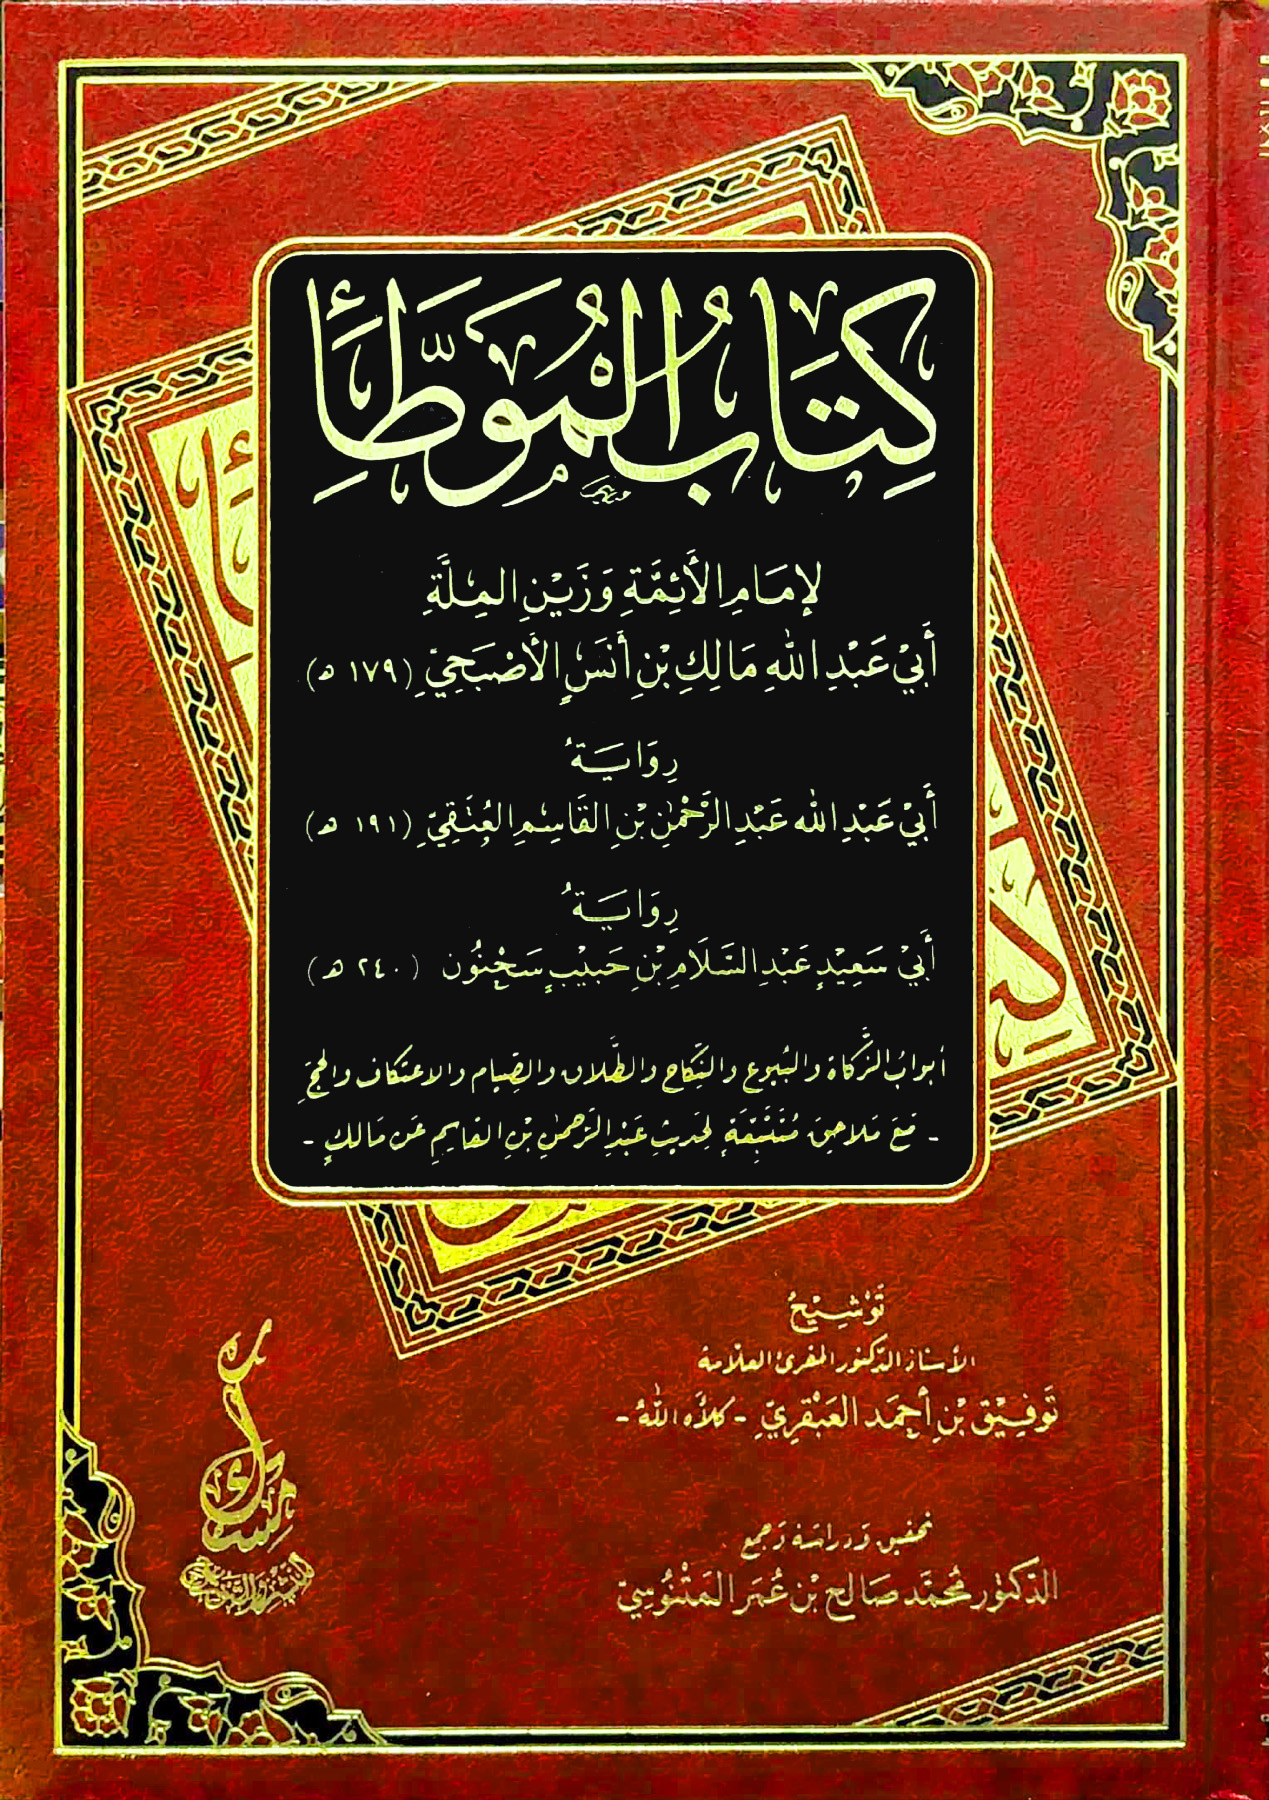 كِتَابُ الْمُوَطَّأِ
لإِمَامِ الأَئِمَّةِ وَزَيْنِ المِلَّةِ
أَبِيْ عَبْدِ اللهِ مَالِكِ بْنِ أَنَسٍ الأَصْبَحِيِّ (١٧٩ هـ)
رِوَايَةُ
أَبِيْ عَبْدِ الله عَبْدِ الرَّحْمٰنِ بْنِ القَاسِمِ العُتَقِيِّ (١٩١ هـ)
رِوَايَةُ
أَبِيْ سَعِيْدٍ عَبْدِ السَّلَامِ بْنِ حَبِيْبٍ سَحْنُون (٢٤٠ هـ)
أبوابُ الزَّكاة والبُيوع والنِّكاح والطَّلاق والصِّيام والاعتكاف والحجِّ
- مَعَ مَلَاحِقَ مُنْتَقِيَةٍ لحَديثِ عَبْدِ الرَّحمٰنِ بْنِ القَاسِمِ عَن مَالكٍ -
تَوْشِيْحُ
الأستاذ الدّكتور المقرئ العلّامة
تَوفِيْق بْنِ أَحمَد العَبْقَرِيِّ - كلأه اللهُ -
تحقيق وَدراسَة وَجمع
الدّكتور محُمَّد صَالح بْن عُمَر المَتْنُوسِيّ
مسك
للنشر والتوزيع